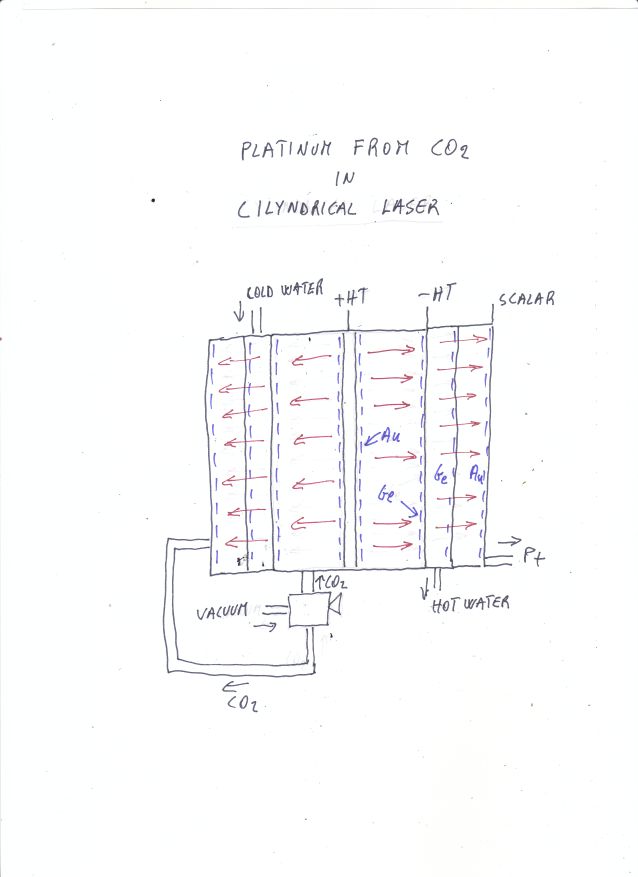 PLATINUM FROM CO2
IN
CILYNDRICAL LASER
COLD WATER
+HT
-HT
SCALAR
Au
Ge
Ge
Au
Pt
CO2
VACUUM
HOT WATER
CO2